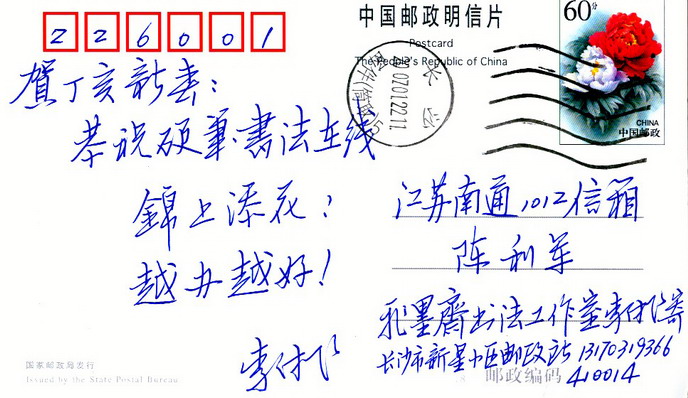 226001
中国邮政明信片
Postcard
The People's Republic of China
60分
CHINA
中国邮政
长沙
07.01.22.11
賀丁亥新春：
恭祝硬筆書法在线
錦上添花；
越办越好！
李付
江苏南通1012信箱
陈利军
墨齋书法工作室李付寄
长沙市新星小区邮政站 13170319366
邮政编码 410014
国家邮政局发行
Issued by the State Postal Bureau